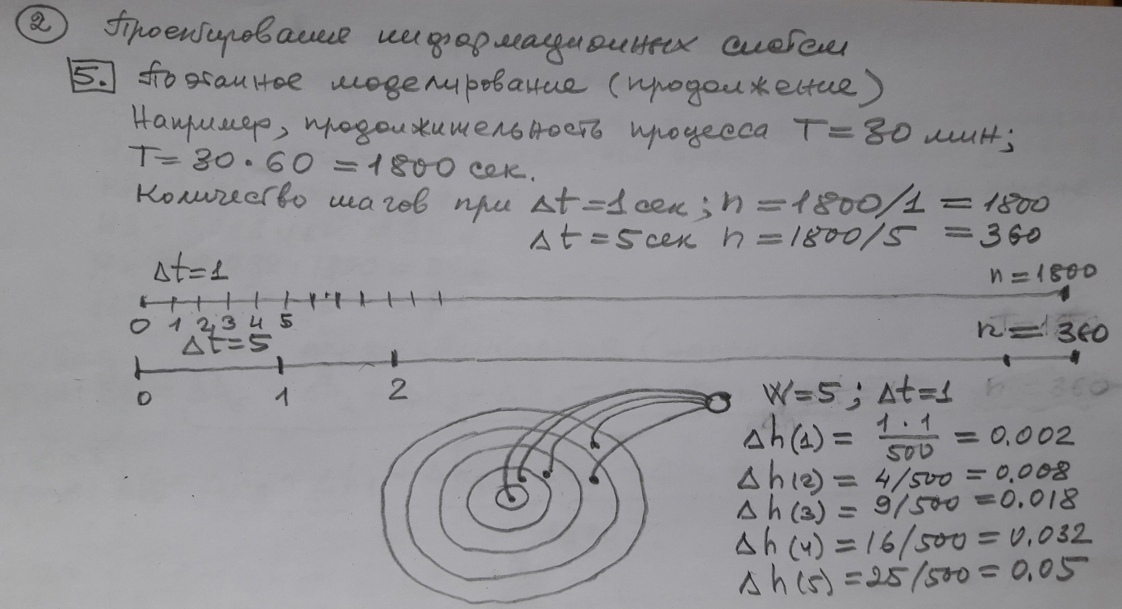 2 Проектирование информационных систем
5. Поэтапное моделирование (продолжение)
Например, продолжительность процесса T = 30 мин;
T = 30 · 60 = 1800 сек.
Количество шагов при Δt = 1 сек; n = 1800/1 = 1800
Δt = 5 сек n = 1800/5 = 360
Δt = 1 n = 1800
0 1 2 3 4 5
Δt = 5 n = 360
0 1 2
W = 5 ; Δt = 1
Δh(1) = 1 · 1 / 500 = 0.002
Δh(2) = 4/500 = 0.008
Δh(3) = 9/500 = 0.018
Δh(4) = 16/500 = 0.032
Δh(5) = 25/500 = 0.05